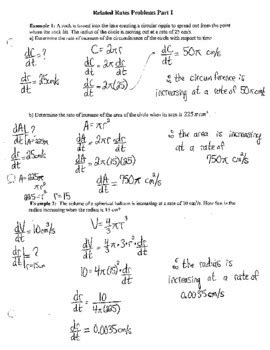 Related Rates Problems Part I
Example 1: A rock is tossed into the lake creating a circular ripple to spread out from the point
where the rock hit. The radius of the circle is moving out at a rate of 25 cm/s.
a) Determine the rate of increase of the circumference of the circle with respect to time
dC/dt = ?
dr/dt = 25cm/s
C = 2πr
dC/dt = 2π dr/dt
dC/dt = 2π(25)
dC/dt = 50π cm/s
∴ the circumference is
increasing at a rate of 50π cm/s
b) Determine the rate of increase of the area of the circle when its area is 225π cm²
dA/dt | A=225π = ?
dr/dt = 25cm/s
A = 225π
πr²
225 = r² r = 15
A = πr²
dA/dt = 2πr · dr/dt
dA/dt = 2π(15)(25)
dA/dt = 750π cm²/s
∴ the area is increasing
at a rate of
750π cm²/s
Example 2: The volume of a spherical balloon is increasing at a rate of 10 cm³/s. How fast is the
radius increasing when the radius is 15 cm?
dV/dt = 10cm³/s
dr/dt | r=15cm = ?
V = 4/3 πr³
dV/dt = 4/3 π · 3 · r² · dr/dt
10 = 4π(15)² · dr/dt
dr/dt = 10/4π(225)
dr/dt = 0.0035cm/s
∴ the radius is
increasing at a rate of
0.0035cm/s